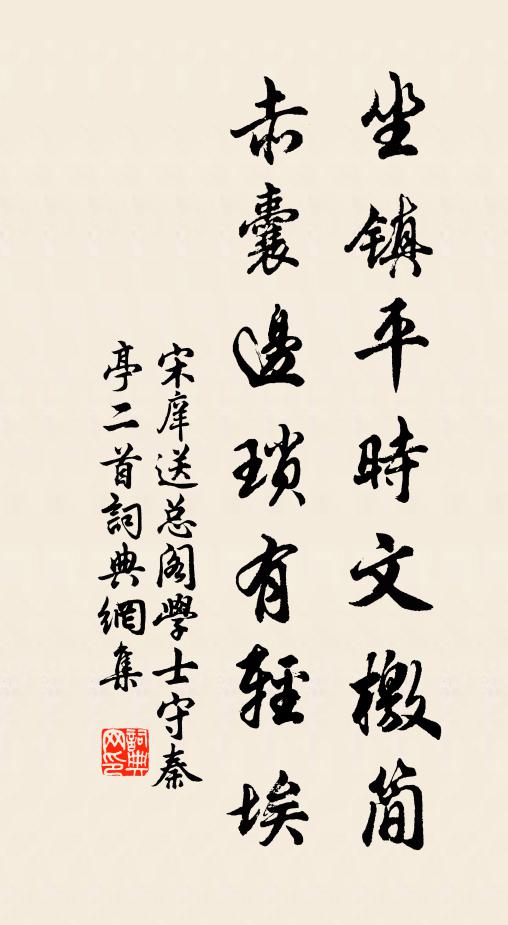 坐镇平時文檄简
赤囊邊瑣有輕埃
宋庠送总阁學士守秦
亭二首詞典網集
詞典网印